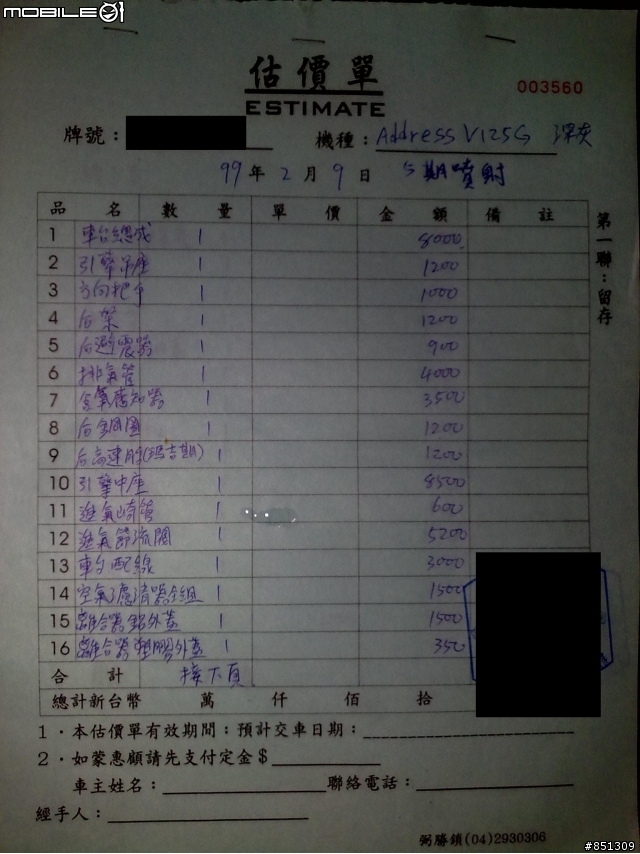 MOBILE01
估價單
003560
ESTIMATE
牌號： 機種：Address V125G 深灰
99年2月9日 5期噴射
品名 數量 單價 金額 備註
第一聯：留存
1 車台總成 1 8000
2 引擎吊座 1 1200
3 方向把手 1 1000
4 后架 1 1200
5 后避震器 1 900
6 排氣管 1 4000
7 含氧感知器 1 3500
8 后鋼圈 1 1200
9 后高速胎(瑪吉斯) 1 1200
10 引擎中座 1 8500
11 進氣歧管 1 600
12 進氣節流閥 1 5200
13 車台配線 1 3000
14 空氣濾清器全組 1 1500
15 離合器鋁外蓋 1 1500
16 離合器塑膠外蓋 1 350
合計 接下頁
總計新台幣 萬 仟 佰 拾
1．本估價單有效期間：預計交車日期：
2．如蒙惠顧請先支付定金$
車主姓名： 聯絡電話：
經手人：
弼勝鎖(04)2930306
#851309